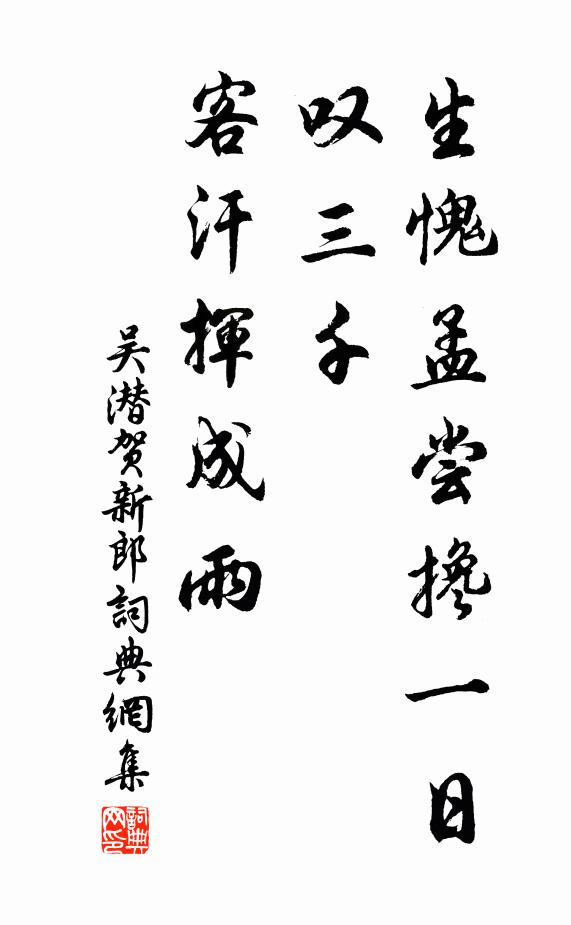 生愧孟尝搀一日
叹三千
客汗揮成雨
吴潜贺新郎詞典網集
詞典网印